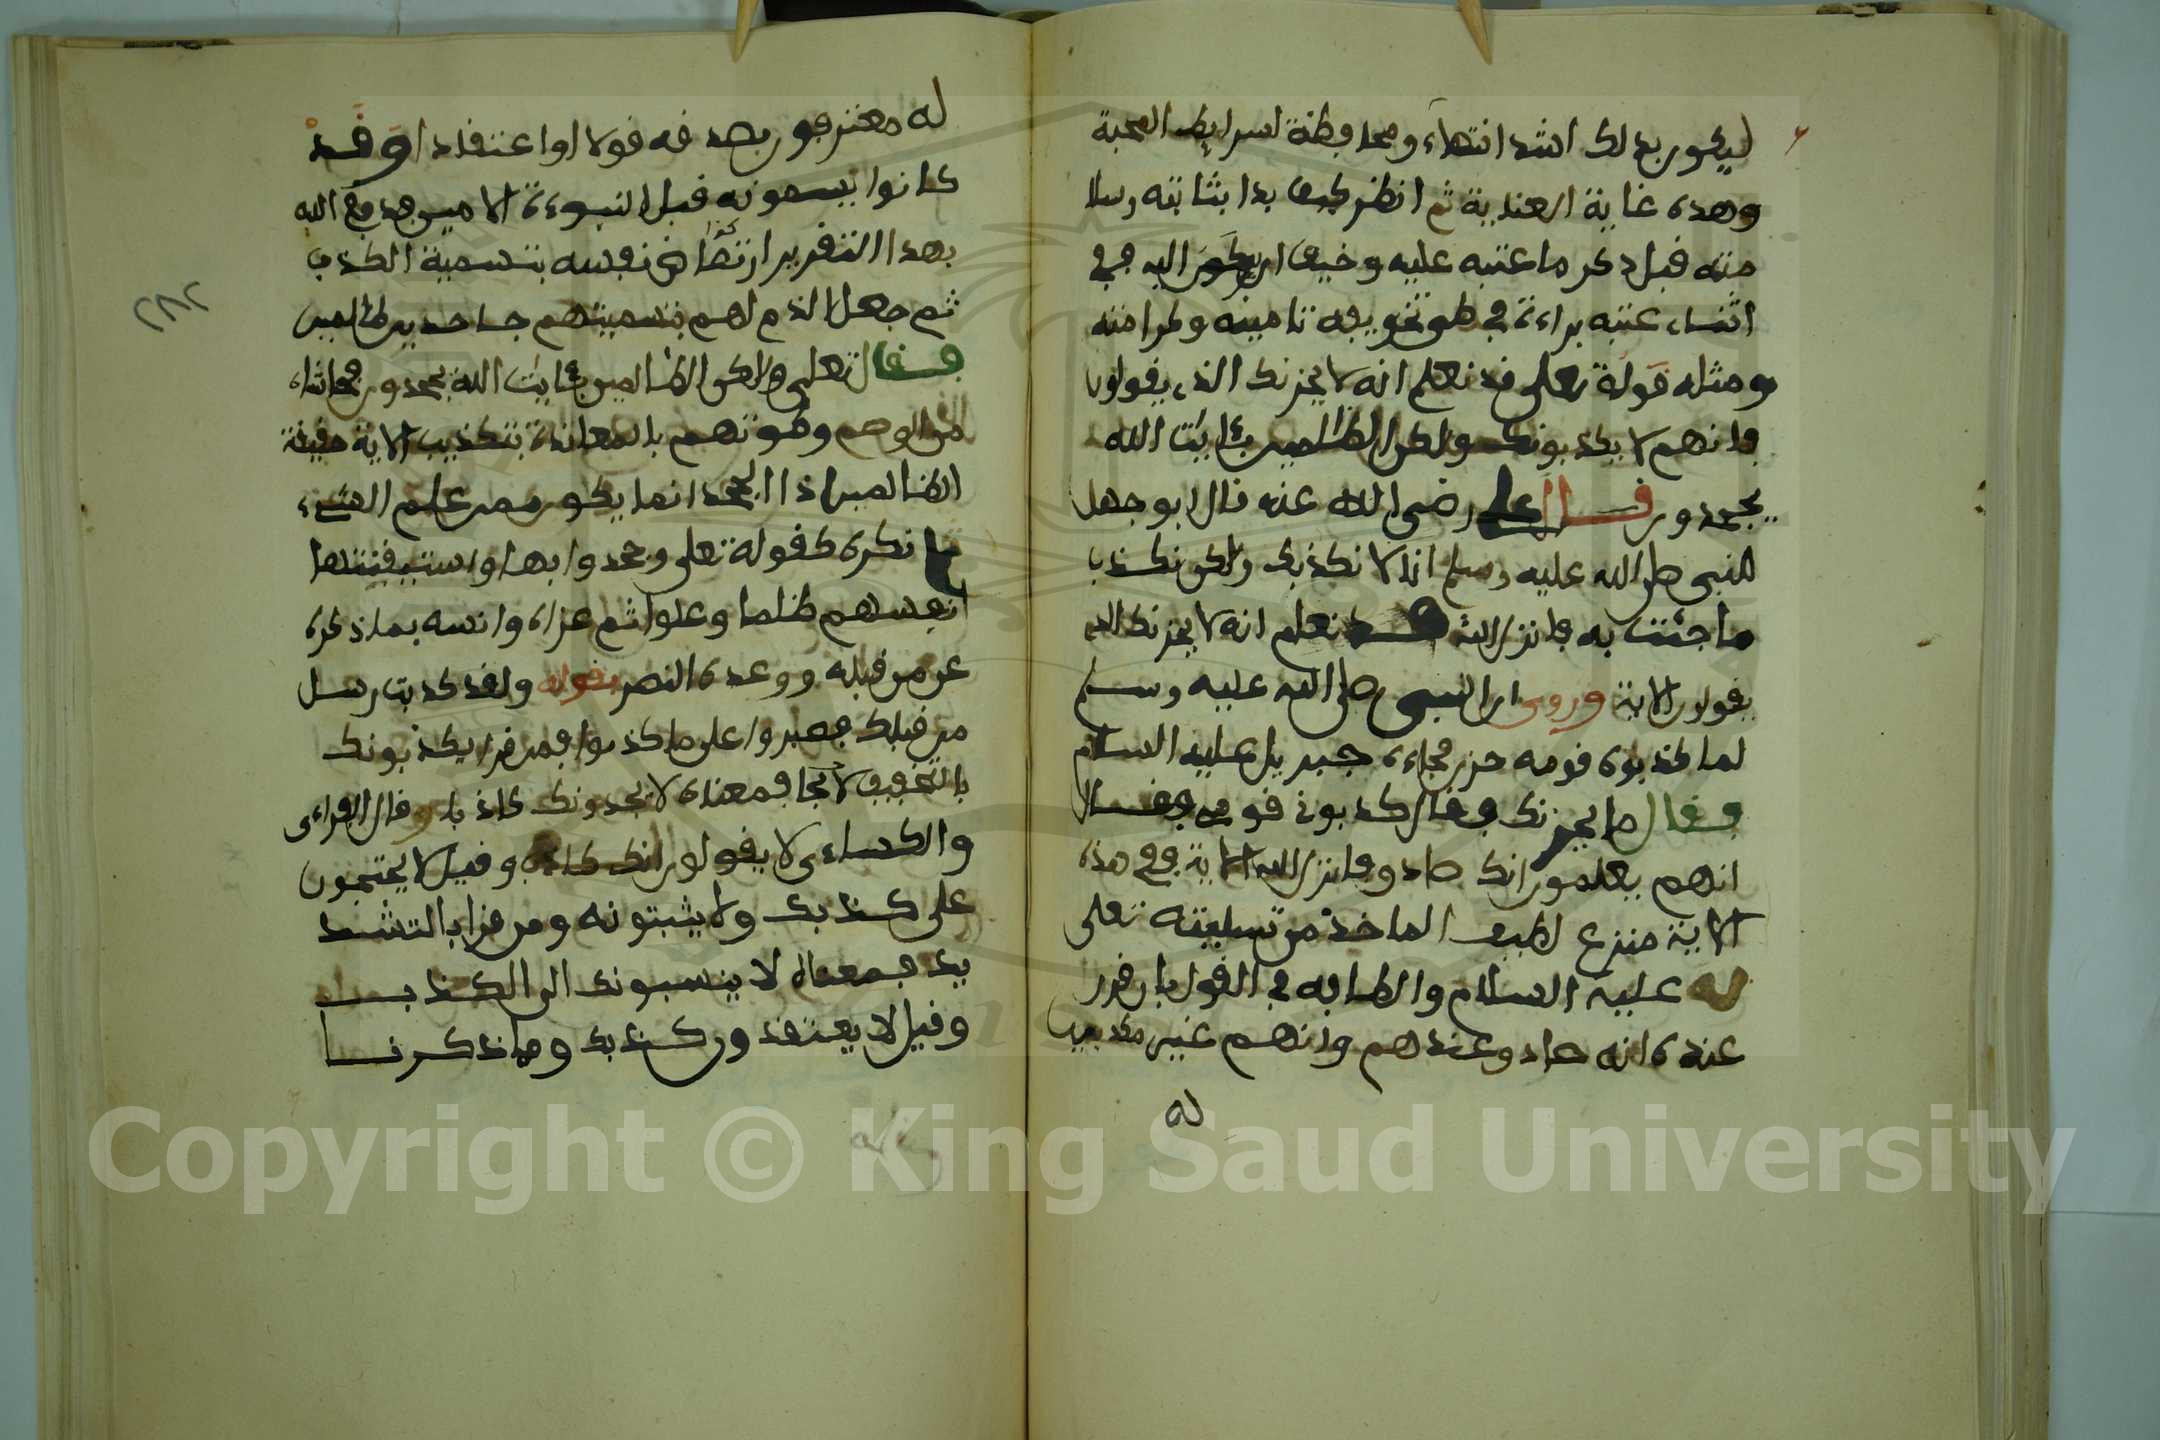 ليكون بذلك اشد انتهاء ومحافظة لشرايط المحبة
وهذه غاية العناية ثم انظر كيف بدا بثباته وسلا
منه قبل ذكر ما عتبه عليه وخيف ان يركن اليه ففي
اثناء عتبه براءته وفي طي تخويفه تامينه وكرامته
ومثله قوله تعلى قد نعلم انه لا يحزنك الذي يقولون
فانهم لا يكذبونك ولكن الظالمين بئايت الله
يجحدون قال علي رضي الله عنه قال ابو جهل
للنبي صلى الله عليه وسلم انا لا نكذبك ولكن نكذب
ما جئت به فانزل الله قد نعلم انه لا يحزنك الذي
يقولون الاية وروي ان النبي صلى الله عليه وسلم
لما كذبوه قومه حزن فجاءه جبريل عليه السلام
فقال ما يحزنك فقال كذبوني قومي فقال
انهم يعلمون انك صادق فانزل الله الاية ففي هذه
الاية منزع لطيف الماخذ من تسليته تعلى
له عليه السلام والطافه في القول بان قرر
عنده انه صادق عندهم وانهم غير مكذبين
له
له معترفون بصدقه قولا او اعتقادا وقد
كانوا يسمونه قبل النبوءة الامين فدفع الله
بهذا التقرير ارتماض نفسه بتسمية الكذب
ثم جعل الذم لهم بتسميتهم جاحدين ظالمين
فقال تعلى ولكن الظالمين بئايت الله يجحدون فحاشاه
من الوصم وطوقهم بالمعاندة بتكذيب الاية حقيقة
الظالمين اذ الجحد انما يكون ممن علم الشيء
ثم انكره كقوله تعلى وجحدوا بها واستيقنتها
انفسهم ظلما وعلوا ثم عزاه وانسه بما ذكره
عن من قبله ووعده النصر بقوله ولقد كذبت رسل
من قبلك فصبروا على ما كذبوا فمن قرا يكذبونك
بالتخفيف فمعناه لا يجدونك كاذبا وقال الفراء
والكساءي لا يقولون انك كاذب وقيل لا يحتجون
على كذبك ولا يثبتونه ومن قرا بالتشد
يد فمعناه لا ينسبونك الى الكذب
وقيل لا يعتقدون كذبك وما ذكرنا
٢٨٢
Copyright © King Saud University